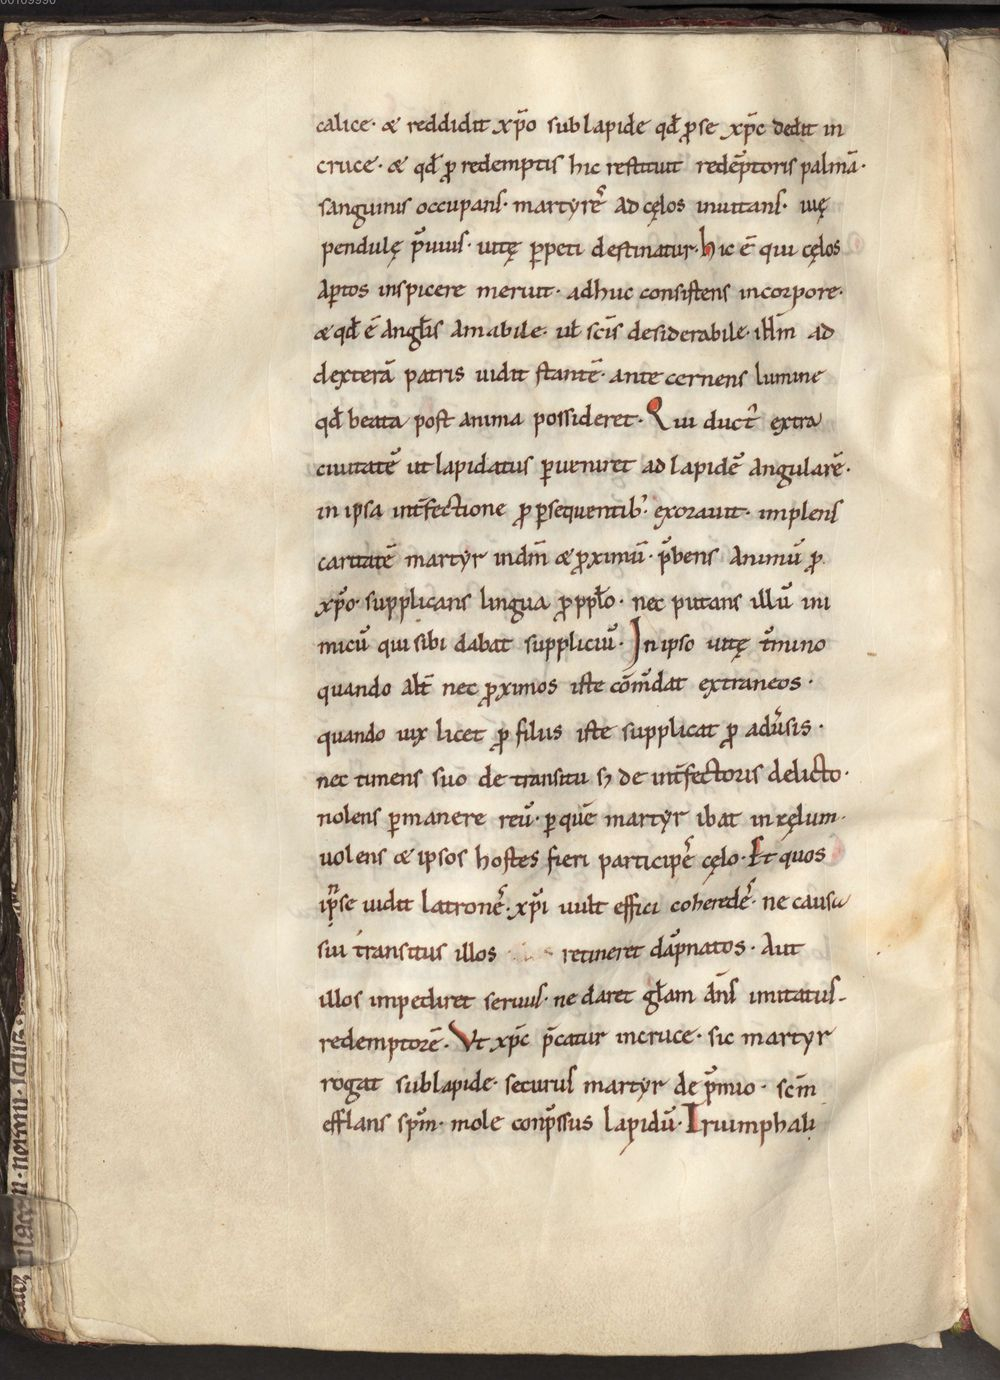 calice· æ reddidit xp̄o sub lapide qđ ꝓse xp̄c dedit in
cruce· æ qđ ꝓ redemptis hic restituit redēptoris palmā·
sanguinis occupans· martyrē ad cęlos inuitans· uię
pendulę p̄uius· uitę ꝑpeti destinatur· hic ē qui cęlos
aꝑtos inspicere meruit· adhuc consistens in corpore·
æ qđ ē angł̄is amabile· uł sc̄is desiderabile· ih̄m ad
dexterā patris uidit stantē· ante cernens lumine
qđ beata post anima possideret· Qui duct᷒ extra
ciuitatē ut lapidatus ꝑueniret ad lapidē angularē·
in ipsa int̄fectione ꝓ ꝑsequentib᷒ exorauit· implens
caritatē martyr in dm̄ æ ꝓximū· p̄bens animū ꝓ
xp̄o· supplicans lingua ꝓ ppl̄o· nec putans illū ini
micū qui sibi dabat suppliciū· In ipso uitę t̄mino
quando alt̄ nec ꝓximos iste com̄dat extraneos·
quando uix licet ꝓ filiis iste supplicat ꝓ adūsis·
nec timens suo de transitu sꝫ de int̄fectoris delicto·
nolens ꝑmanere reū· ꝑ quē martyr ibat in cęlum·
uolens æ ipsos hostes fieri participē cęlo· Et quos
ip̄se uidit latronē· xp̄i uult effici coheredē· ne causa
sui transitus illos retineret dāpnatos· Aut
illos impediret seruus· ne daret gł̄am dn̄s imitatus
redemptorē· Vt xp̄c p̄catur in cruce· sic martyr
rogat sub lapide· securus martyr de p̄mio· sc̄m
efflans sp̄m· mole conp̄ssus lapidū· Triumphali